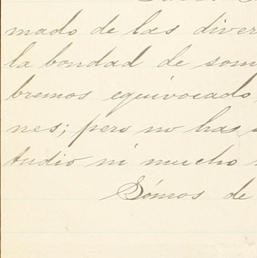 mado de las diver
la bondad de som
bremos equivocado,
nes; pero no has
tudio ni mucho
Sómos de